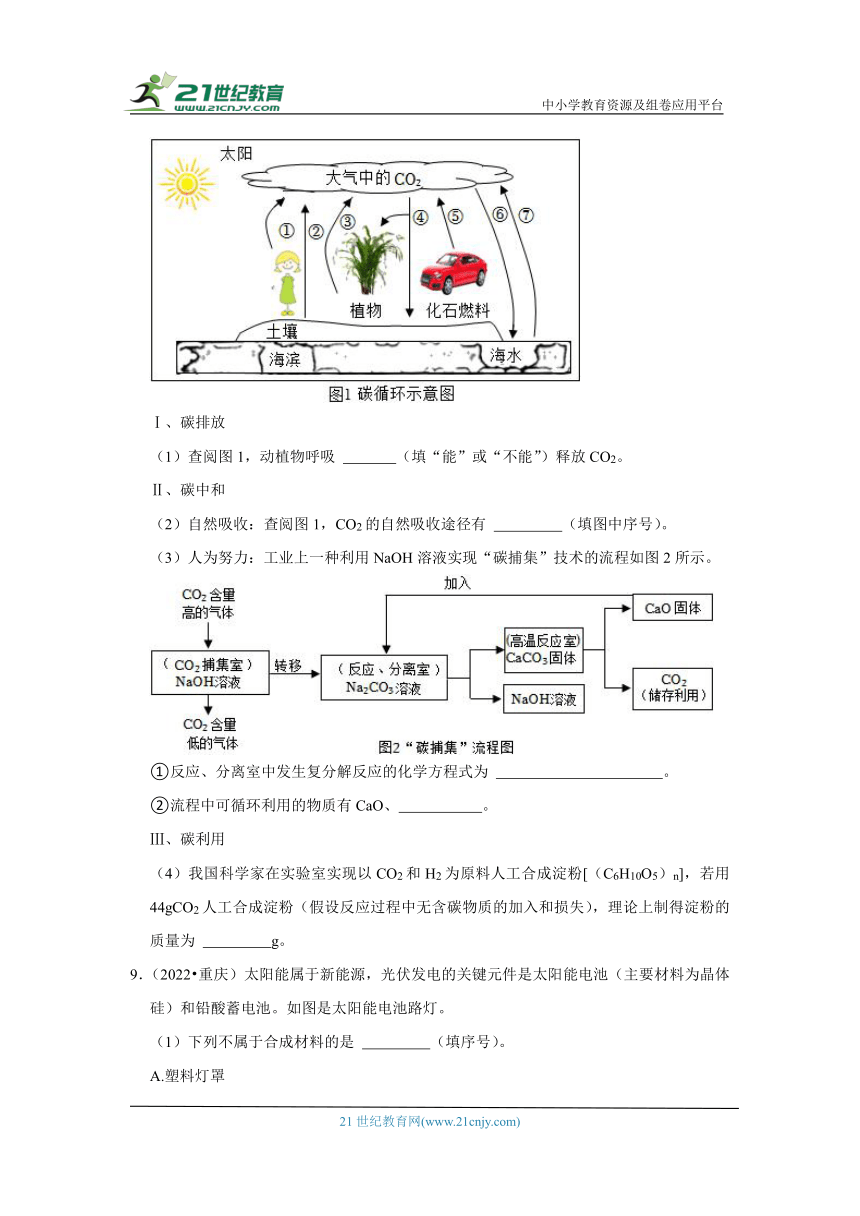 21世纪教育
WWW.21CNJY.COM
中小学教育资源及组卷应用平台
太阳
大气中的CO2
① ② ③ ④ ⑤ ⑥ ⑦
植物 化石燃料
土壤
海滨 海水
图1 碳循环示意图
Ⅰ、碳排放
（1）查阅图1，动植物呼吸 （填“能”或“不能”）释放CO2。
Ⅱ、碳中和
（2）自然吸收：查阅图1，CO2的自然吸收途径有 （填图中序号）。
（3）人为努力：工业上一种利用NaOH溶液实现“碳捕集”技术的流程如图2所示。
加入
CO2含量
高的气体
（CO2捕集室）
NaOH溶液
转移
（反应、分离室）
Na2CO3溶液
(高温反应室)
CaCO3固体
NaOH溶液
CaO固体
CO2
（储存利用）
CO2含量
低的气体
图2“碳捕集”流程图
①反应、分离室中发生复分解反应的化学方程式为 。
②流程中可循环利用的物质有CaO、 。
Ⅲ、碳利用
（4）我国科学家在实验室实现以CO2和H2为原料人工合成淀粉[（C6H10O5）n]，若用
44gCO2人工合成淀粉（假设反应过程中无含碳物质的加入和损失），理论上制得淀粉的
质量为 g。
9.（2022•重庆）太阳能属于新能源，光伏发电的关键元件是太阳能电池（主要材料为晶体
硅）和铅酸蓄电池。如图是太阳能电池路灯。
（1）下列不属于合成材料的是 （填序号）。
A.塑料灯罩
21世纪教育网(www.21cnjy.com)